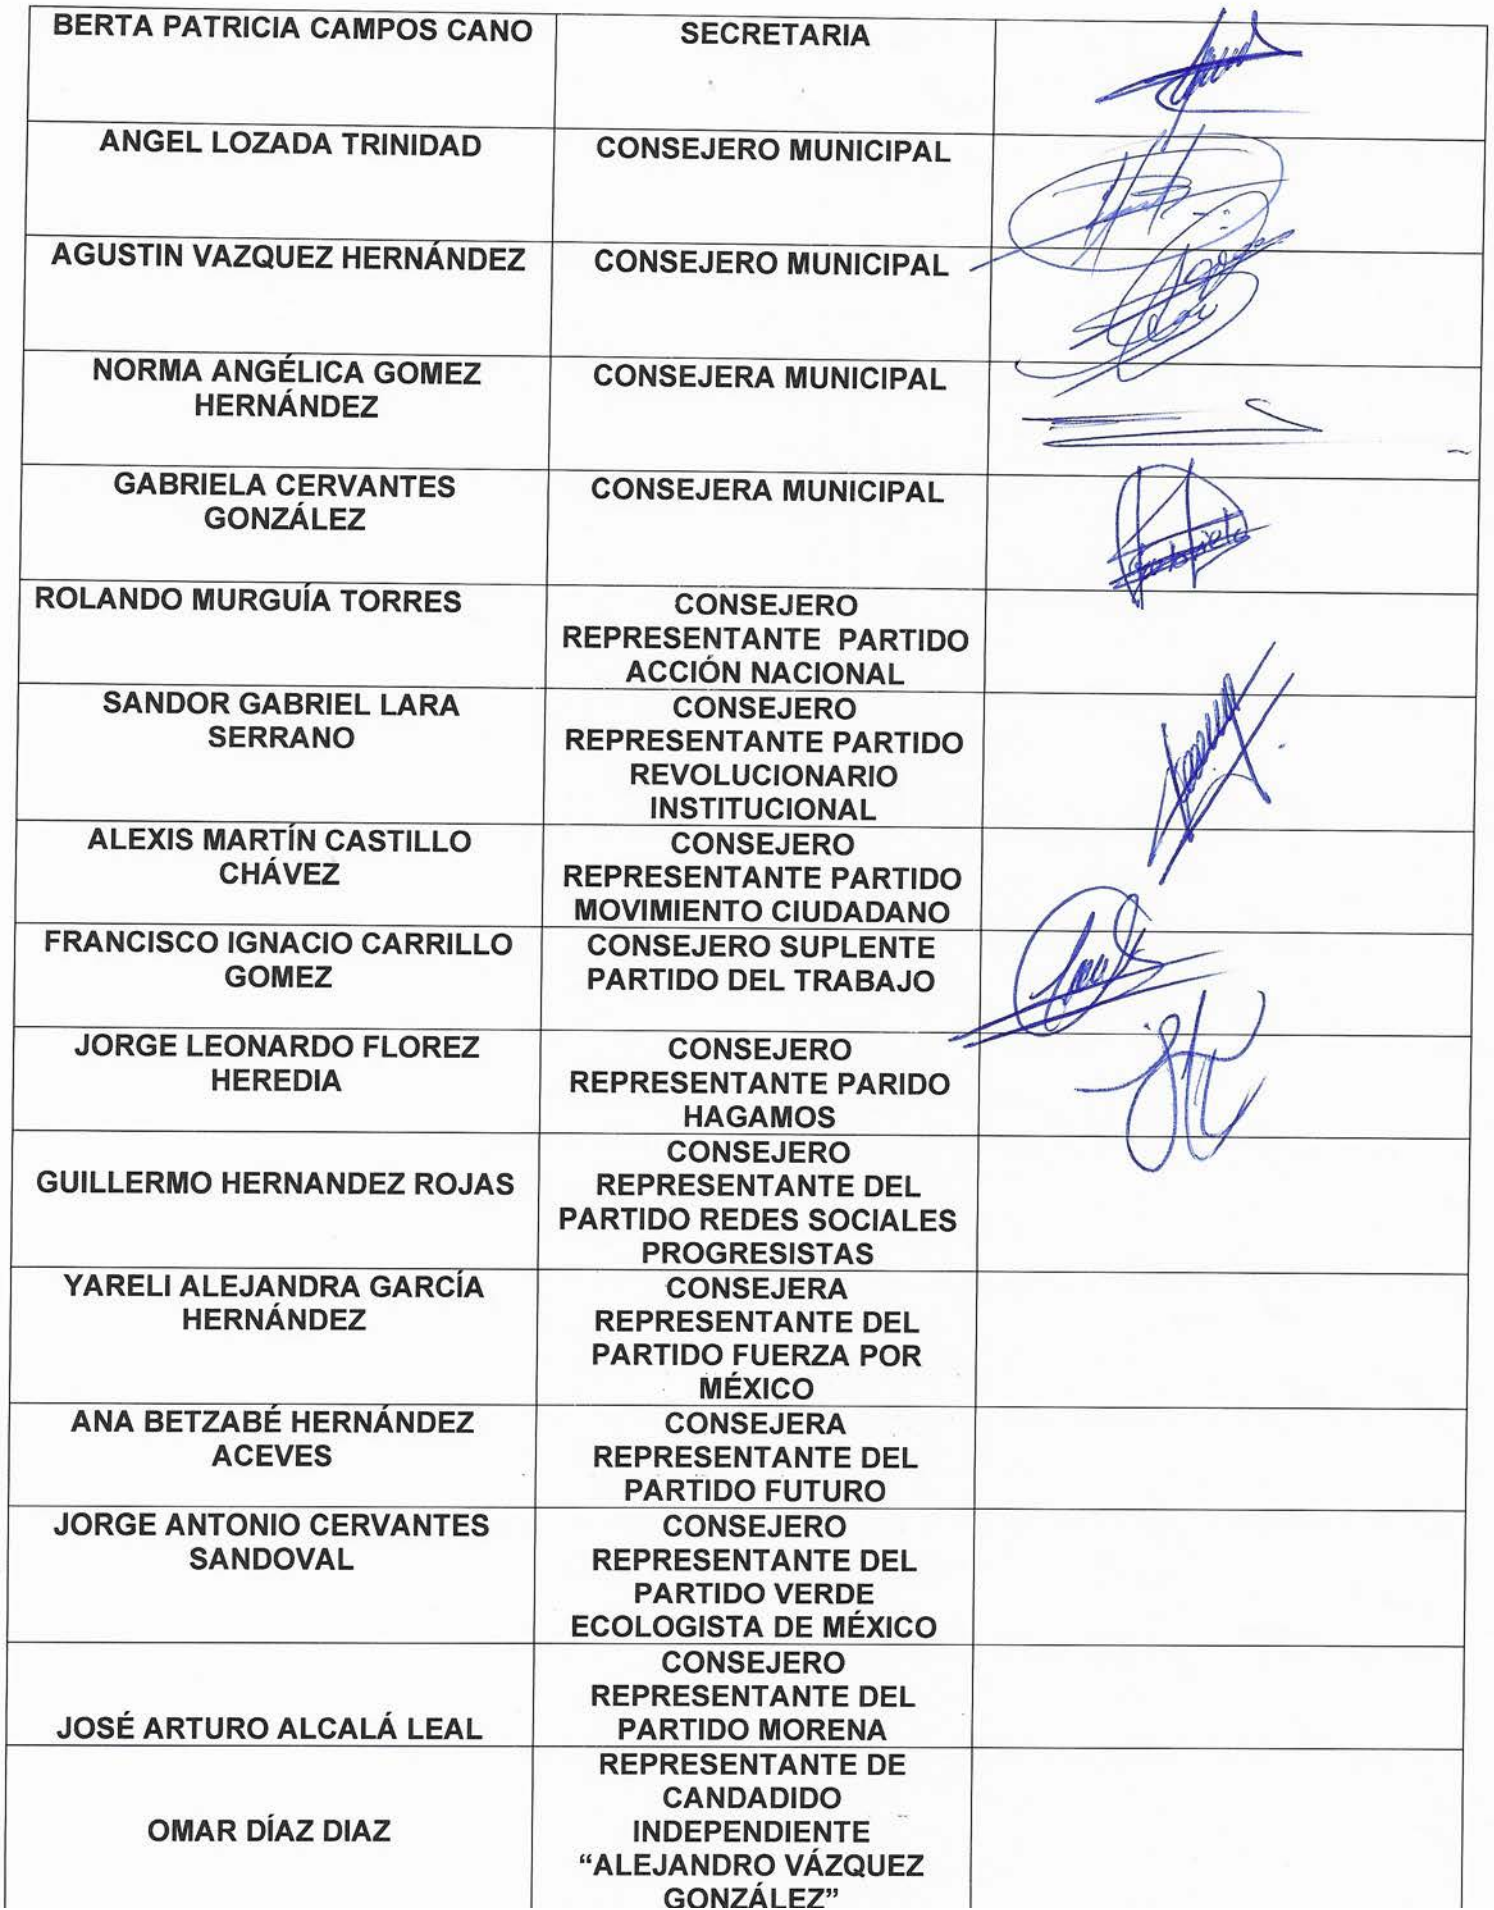 BERTA PATRICIA CAMPOS CANO
SECRETARIA
ANGEL LOZADA TRINIDAD
CONSEJERO MUNICIPAL
AGUSTIN VAZQUEZ HERNÁNDEZ
CONSEJERO MUNICIPAL
NORMA ANGÉLICA GOMEZ
HERNÁNDEZ
CONSEJERA MUNICIPAL
GABRIELA CERVANTES
GONZÁLEZ
CONSEJERA MUNICIPAL
Gabriela
ROLANDO MURGUÍA TORRES
CONSEJERO
REPRESENTANTE PARTIDO
ACCIÓN NACIONAL
SANDOR GABRIEL LARA
SERRANO
CONSEJERO
REPRESENTANTE PARTIDO
REVOLUCIONARIO
INSTITUCIONAL
ALEXIS MARTÍN CASTILLO
CHÁVEZ
CONSEJERO
REPRESENTANTE PARTIDO
MOVIMIENTO CIUDADANO
FRANCISCO IGNACIO CARRILLO
GOMEZ
CONSEJERO SUPLENTE
PARTIDO DEL TRABAJO
JORGE LEONARDO FLOREZ
HEREDIA
CONSEJERO
REPRESENTANTE PARIDO
HAGAMOS
GUILLERMO HERNANDEZ ROJAS
CONSEJERO
REPRESENTANTE DEL
PARTIDO REDES SOCIALES
PROGRESISTAS
YARELI ALEJANDRA GARCÍA
HERNÁNDEZ
CONSEJERA
REPRESENTANTE DEL
PARTIDO FUERZA POR
MÉXICO
ANA BETZABÉ HERNÁNDEZ
ACEVES
CONSEJERA
REPRESENTANTE DEL
PARTIDO FUTURO
JORGE ANTONIO CERVANTES
SANDOVAL
CONSEJERO
REPRESENTANTE DEL
PARTIDO VERDE
ECOLOGISTA DE MÉXICO
JOSÉ ARTURO ALCALÁ LEAL
CONSEJERO
REPRESENTANTE DEL
PARTIDO MORENA
OMAR DÍAZ DIAZ
REPRESENTANTE DE
CANDADIDO
INDEPENDIENTE
“ALEJANDRO VÁZQUEZ
GONZÁLEZ”